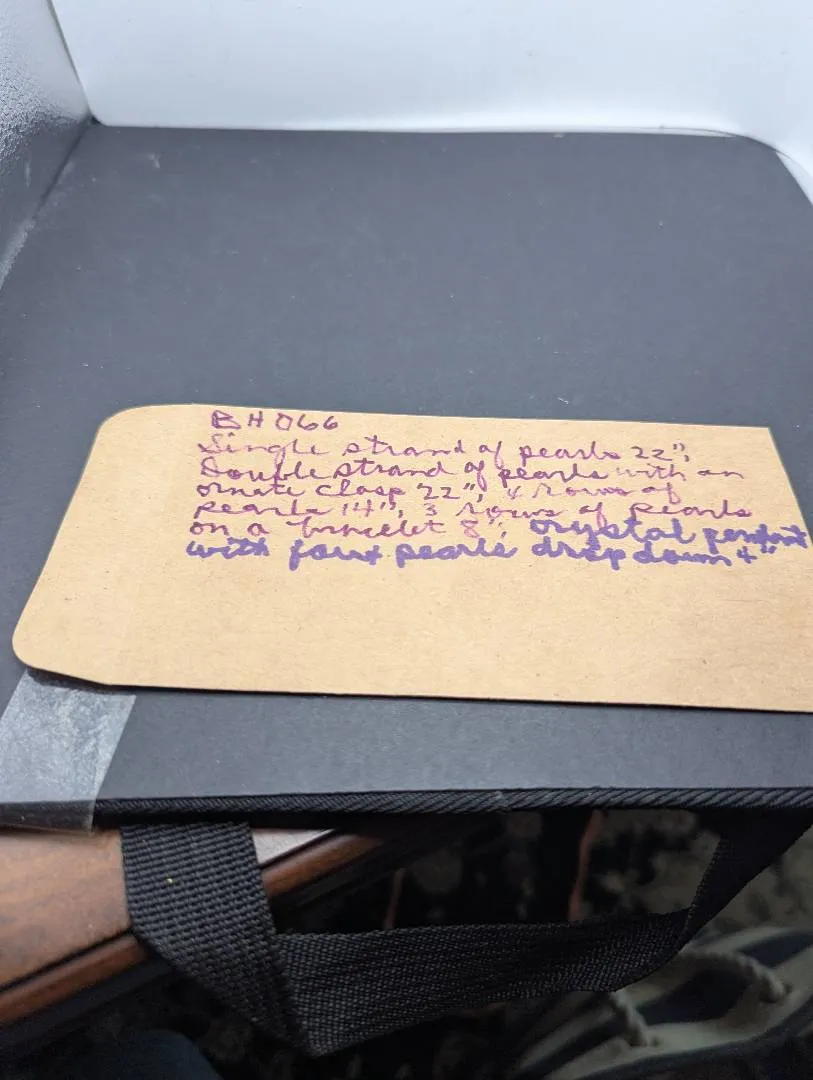 BH066
Single strand of pearls 22";
Double strand of pearls with an
ornate clasp 22"; 4 rows of
pearls 14"; 3 rows of pearls
on a bracelet 8"; crystal pendant
with four pearls drop down 4"